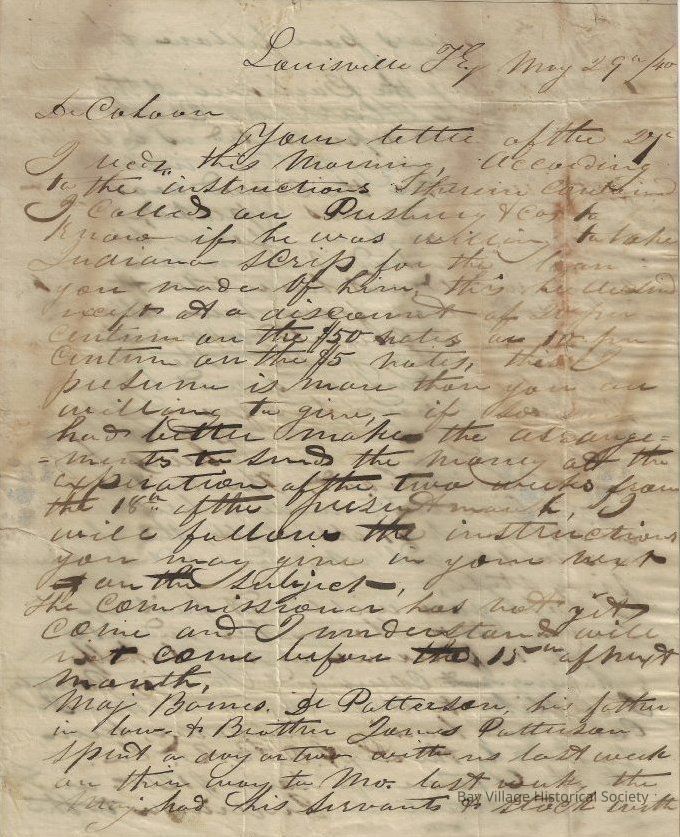 Louisville Ky May 29th /40
Dr Cahoon
Your letter of the 27th
I recd this Morning, According
to the instructions therein contained
I called on Pusbury & Co to
know if he was willing to take
Indiana scrip for the loan
you made of him, this he declined
except at a discount of per
centum on the $50 notes or 10 per
centum on the $5 notes, this I
presume is more than you are
willing to give, – if so you
had better make the arrange=
=ments to send the money at the
experation of the two weeks from
the 18th of the present month, I
will follow the instructions
you may give in your next
on the subject,
The commissioner has not yet
come and I understand will
not come before the 15th of next
month,
Maj Barnes. Dr Patterson, his father
in law. & Brother James Patterson
spent a day or two with us last week
on their way to Mo. last week, the
Maj had his servants & stock with
Bay Village Historical Society